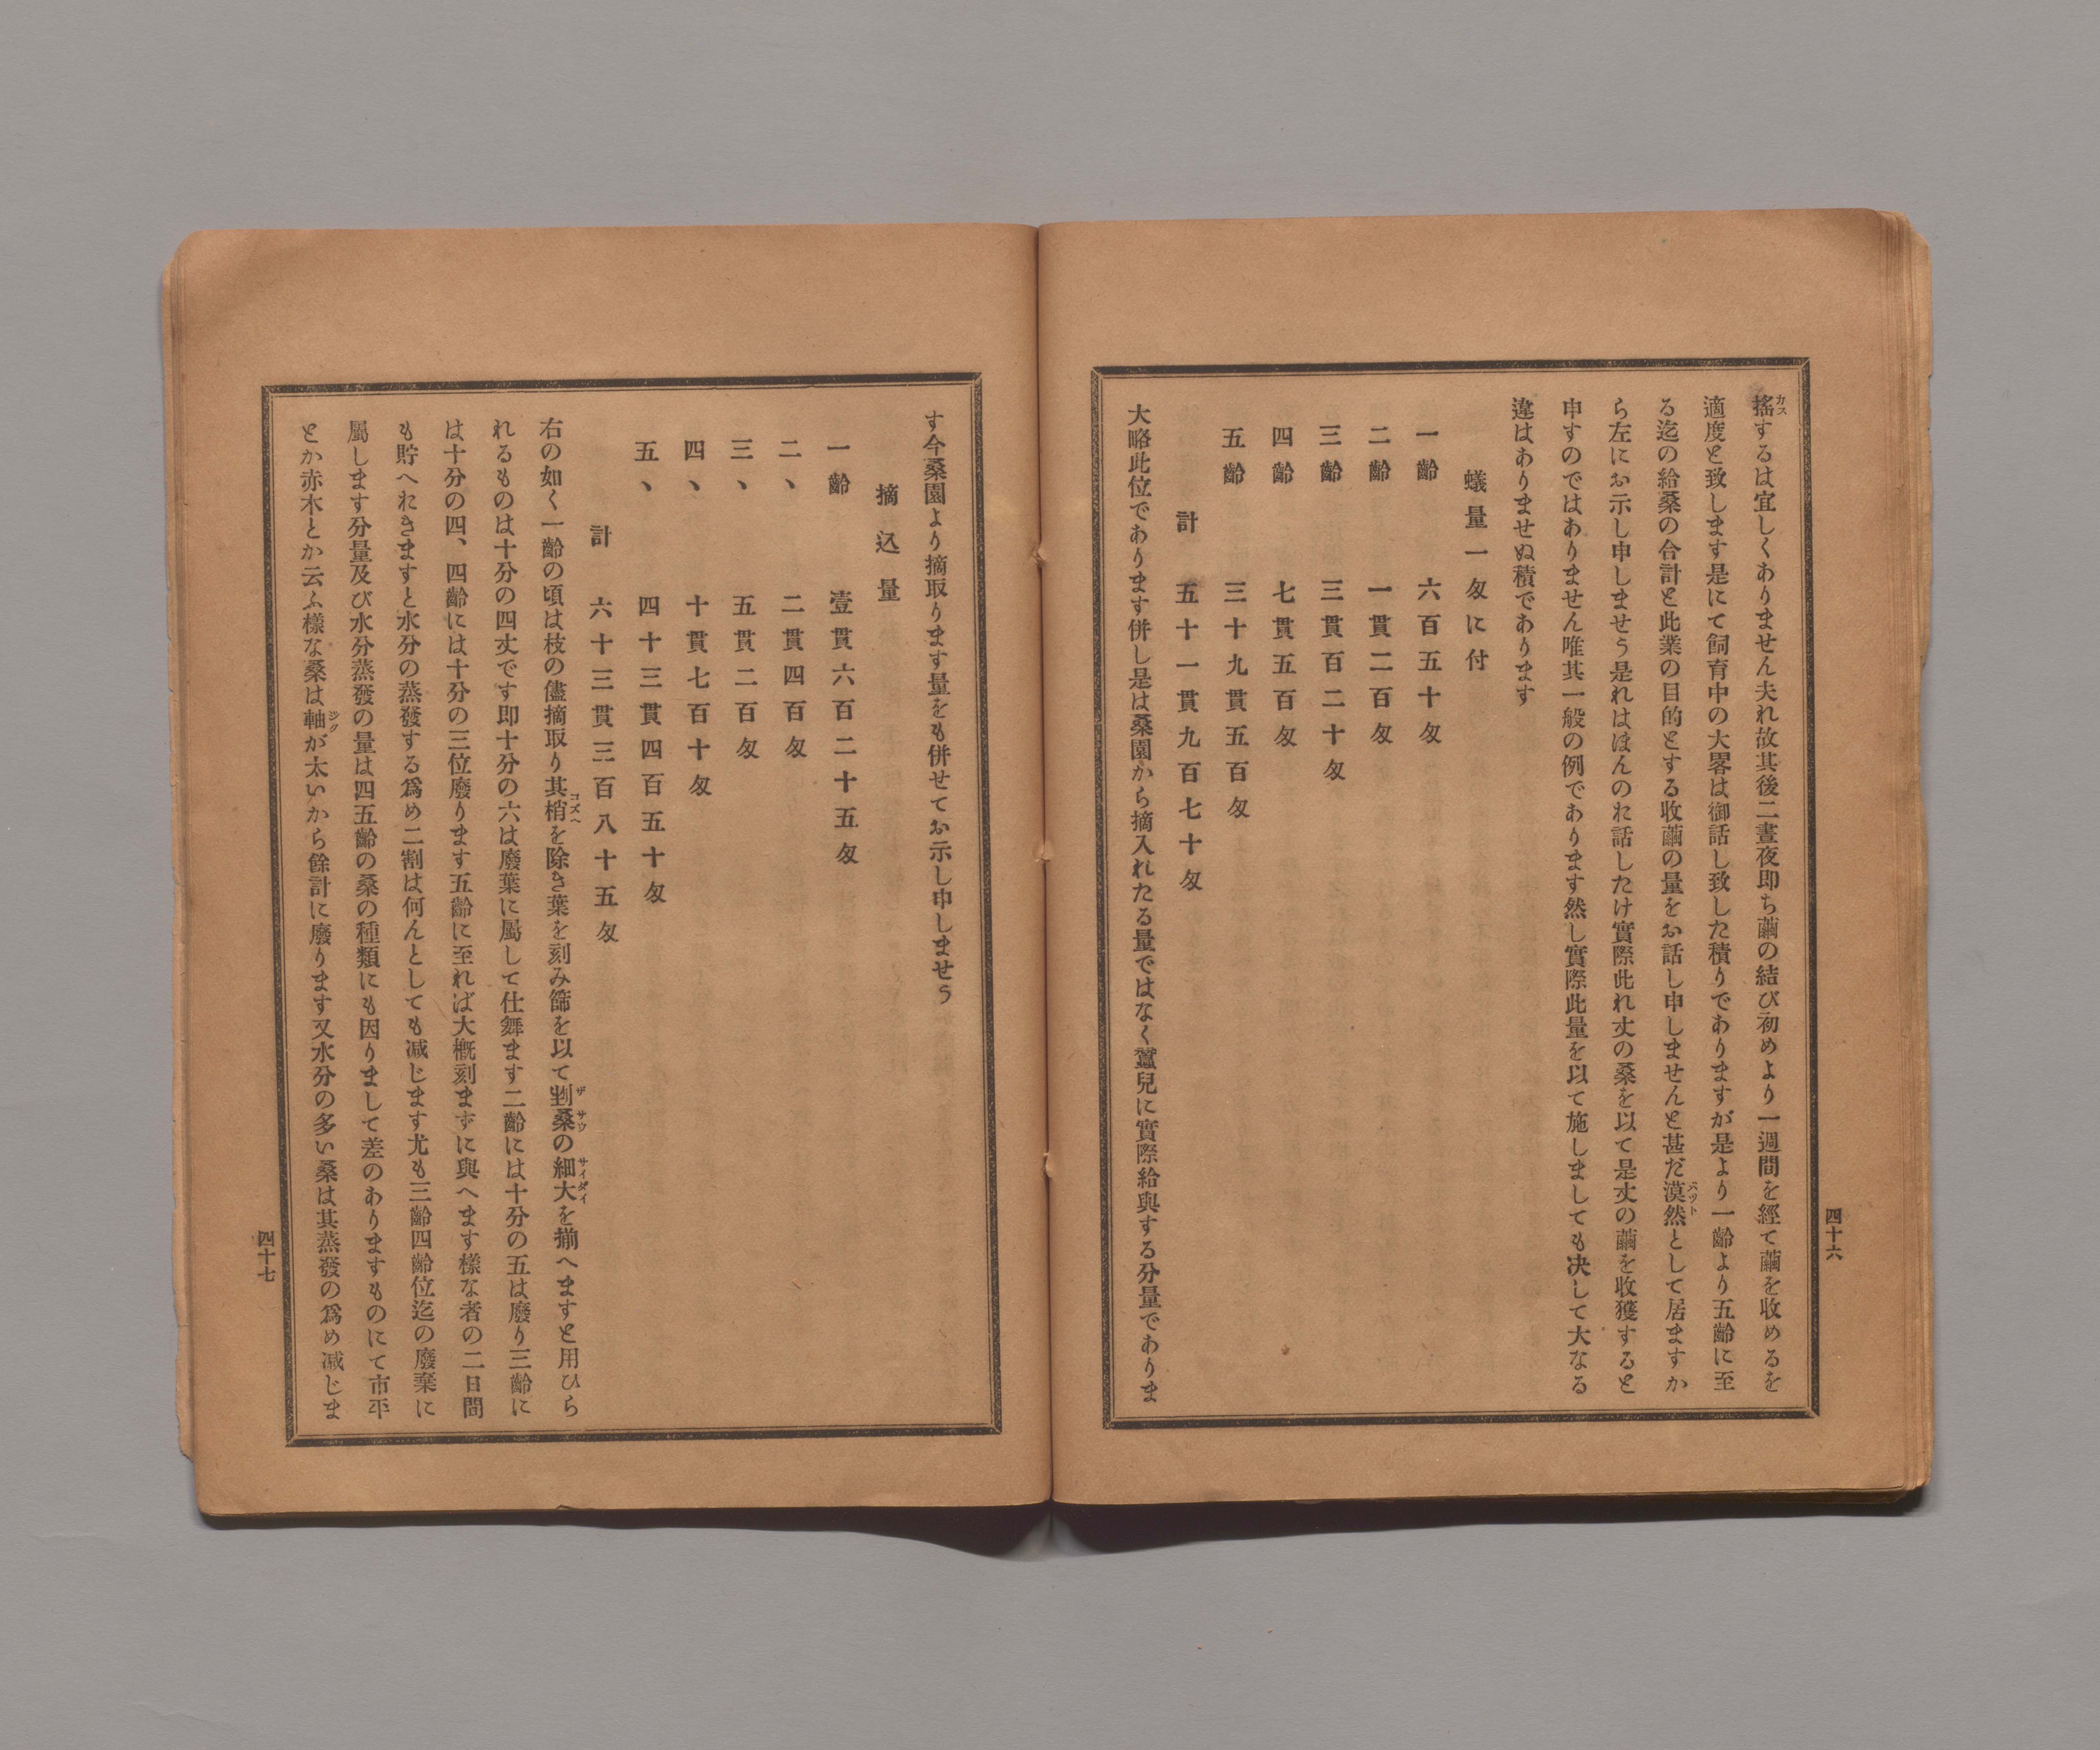 搖するは宜しくありません夫れ故其後二晝夜即ち繭の結び初めより一週間を經て繭を收めるを
カス
適度と致します是にて飼育中の大畧は御話し致した積りでありますが是より一齡より五齡に至
る迄の給桑の合計と此業の目的とする收繭の量をお話し申しませんと甚だ漠然として居ますか
バット
ら左にお示し申しませう是れはほんのお話したけ實際此れ丈の桑を以て是丈の繭を收獲すると
申すのではありません唯其一般の例であります然し實際此量を以て施しましても决して大なる
違はありませぬ積であります
蟻量一匁に付
一齡 六百五十匁
二齡 一貫二百匁
三齡 三貫百二十匁
四齡 七貫五百匁
五齡 三十九貫五百匁
計 五十一貫九百七十匁
大略此位であります併し是は桑園から摘入れたる量ではなく蠶兒に實際給與する分量でありま
四十六
す今桑園より摘取ります量をも併せてお示し申しませう
摘込量
一齡 壹貫六百二十五匁
二、 二貫四百匁
三、 五貫二百匁
四、 十貫七百十匁
五、 四十三貫四百五十匁
計 六十三貫三百八十五匁
右の如く一齡の頃は枝の儘摘取り其梢を除き葉を刻み篩を以て剉桑の細大を揃へますと用ひら
コズヘ ザサウ サイダイ
れるものは十分の四丈です即十分の六は廢葉に屬して仕舞ます二齡には十分の五は廢り三齡に
は十分の四、四齡には十分の三位廢ります五齡に至れば大槪刻まずに與へます樣な者の二日間
も貯へおきますと水分の蒸發する爲め二割は何んとしても减じます尤も三齡四齡位迄の廢棄に
屬します分量及び水分蒸發の量は四五齡の桑の種類にも因りまして差のありますものにて市平
とか赤木とか云ふ樣な桑は軸が太いから餘計に廢ります又水分の多い桑は其蒸發の爲め减じま
ジク
四十七